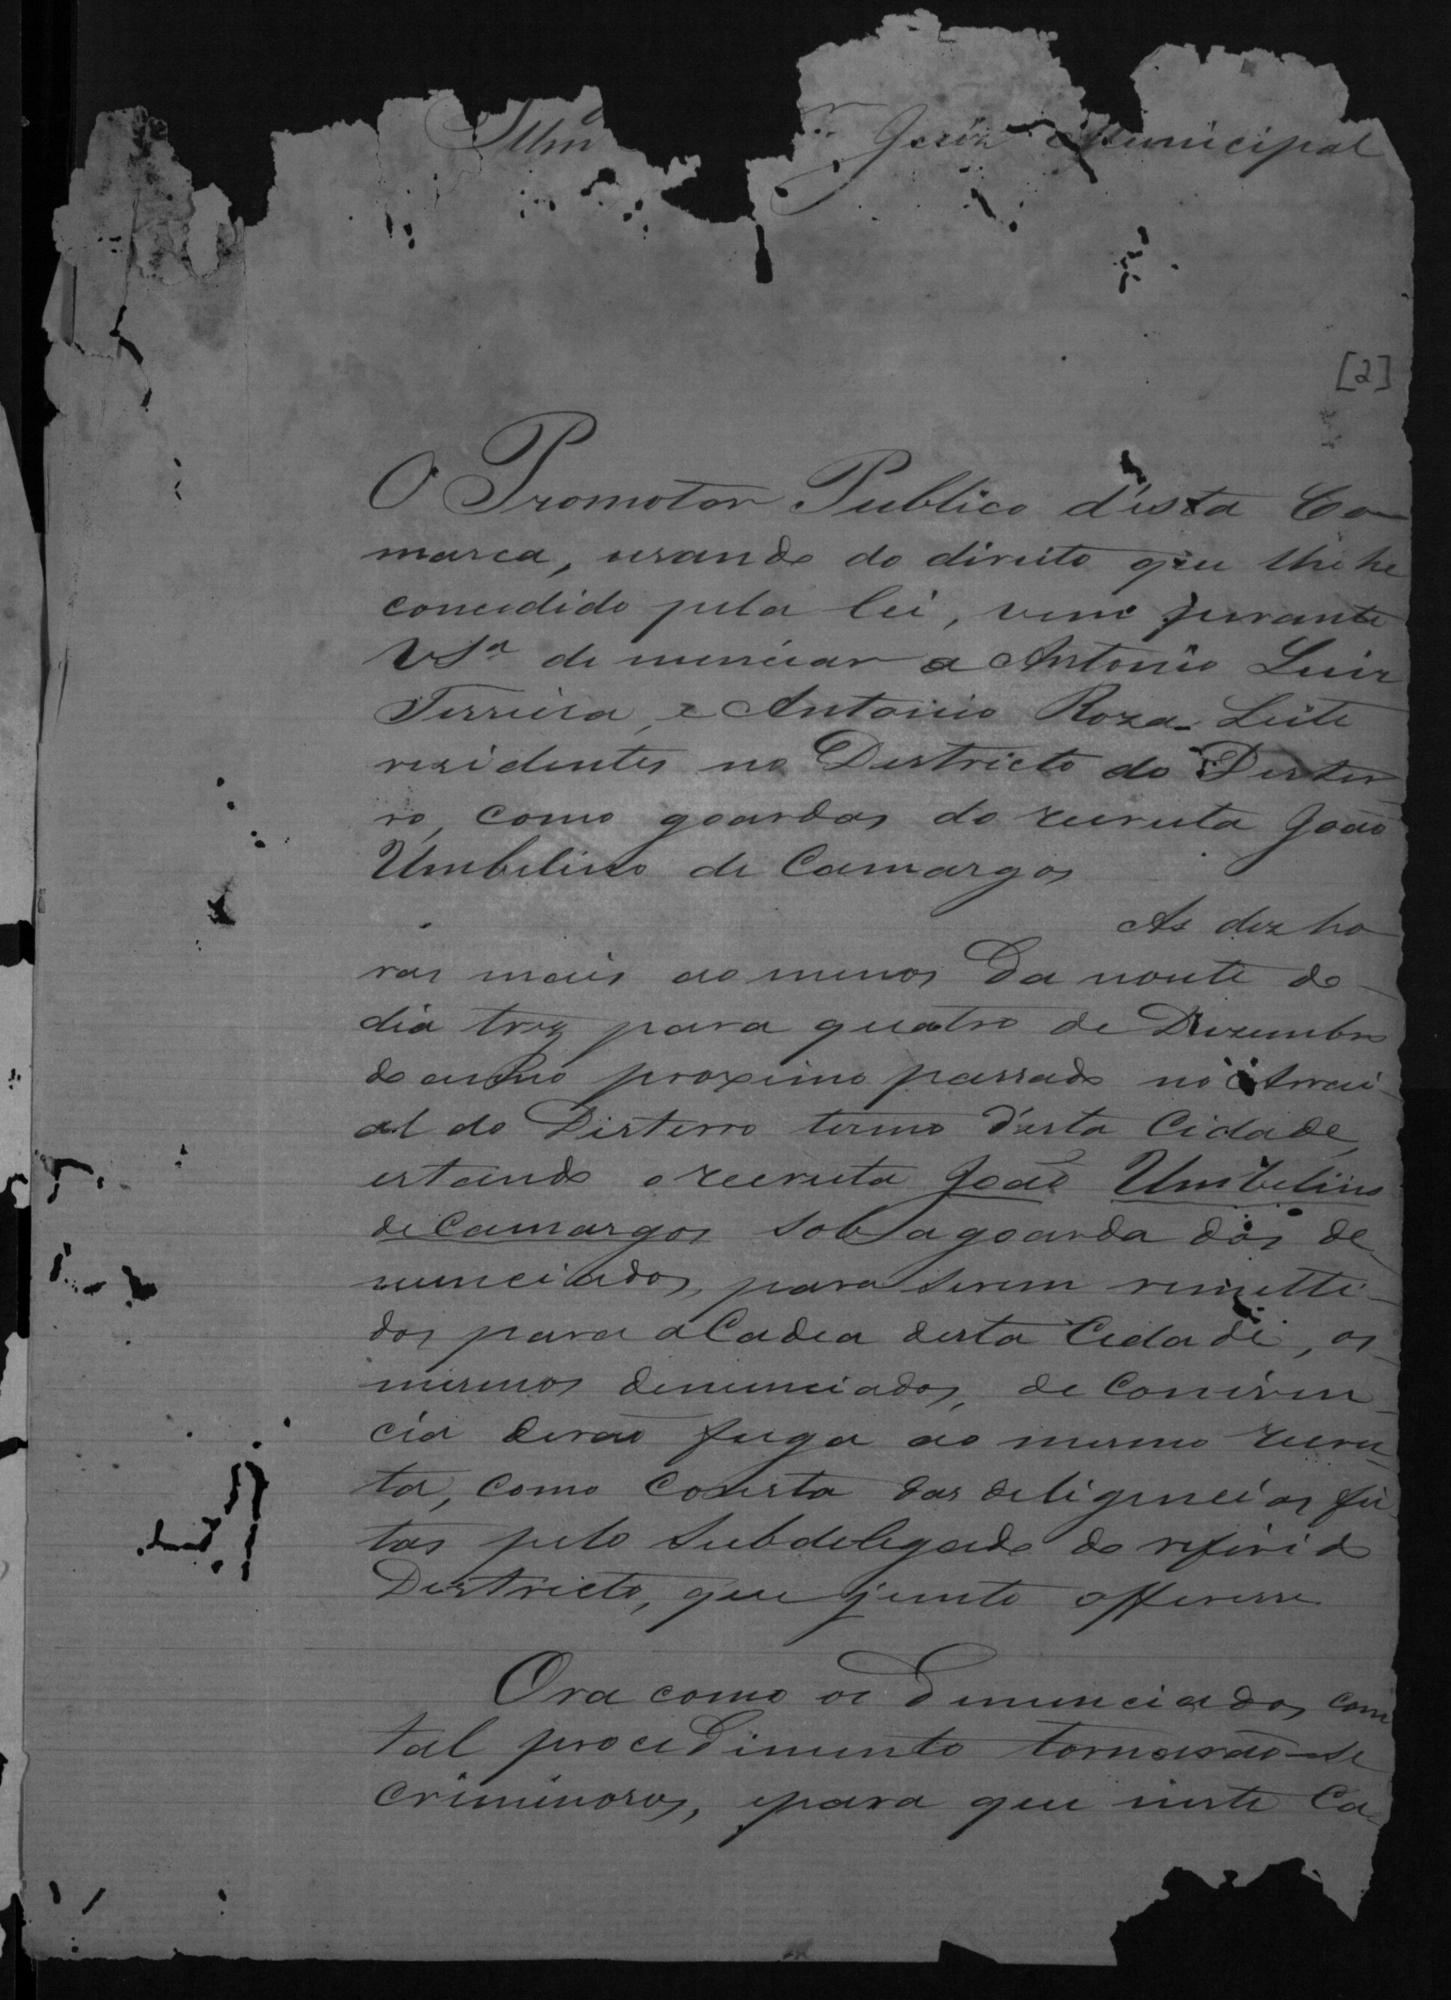 Illmo Juiz Municipal
[2]
O Promotor Publico d'esta Co-
marca, usando do direito que lhe he
concedido pela lei, vem perante
VSª denunciar a Antonio Luiz
Ferreira, e Antonio Roza Leite
rezidentes no Destricto do Dester-
ro, como goardas do recruta João
Umbelino de Camargos
As dez ho-
ras mais ao menos da noute do
dia trez para quatro de Dezembro
do anno proximo passado no Arrai-
al do Desterro termo d'esta Cidade,
estando o recruta João Umbelino
de Camargos sob a goarda dos de-
nunciados, para serem remetti-
dos para a Cadea desta Cidade, os
mesmos denunciados, de Coniven-
cia derão fuga ao mesmo recru-
ta, como Consta das deligencias fei-
tas pelo Subdelegado do referido
Destricto, que junto offeresse
Ora como os denunciados com
tal procedimento tornarão-se
criminosos, epara que neste Ca-